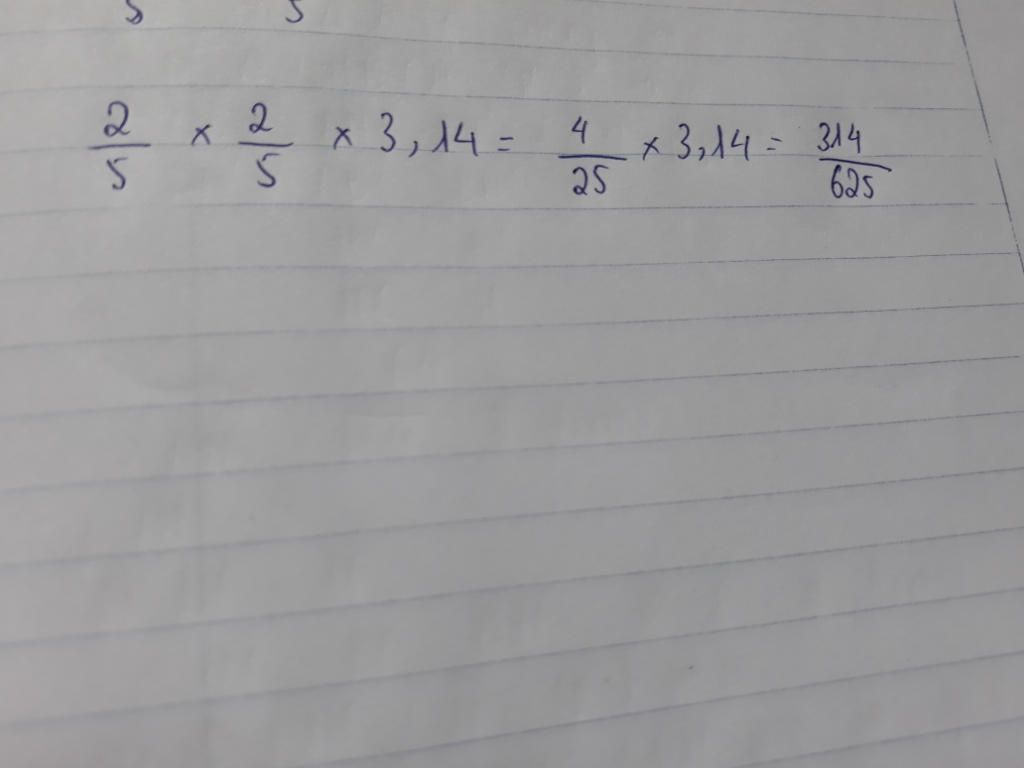 5 5
2/5 × 2/5 × 3,14 = 4/25 × 3,14 = 314/625